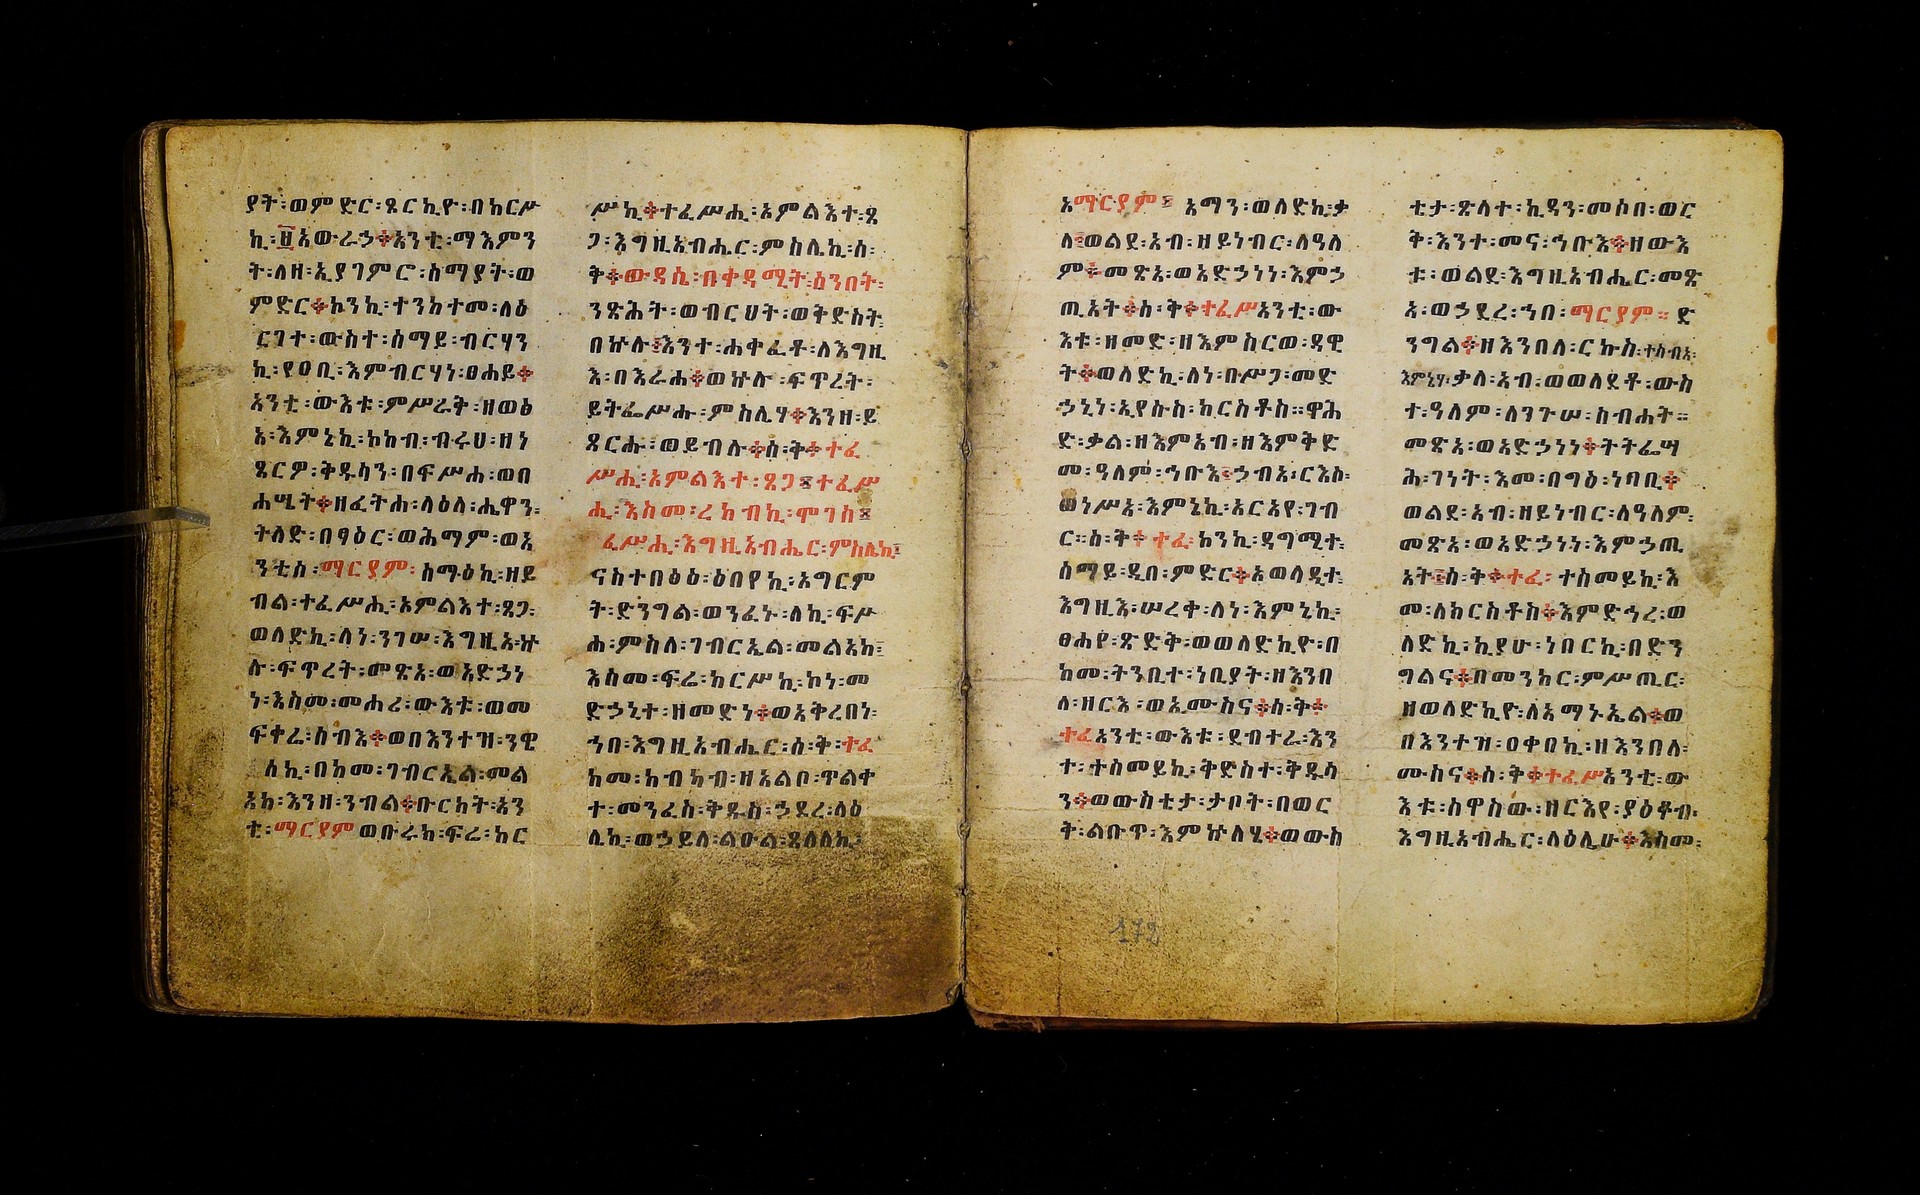 ያት፡ወምድር፡ጾርኪዮ፡በከርሥ
ኪ፡፱አውራኃ፨አንቲ፡ማእምን
ት፡ለዘ፡ኢያገምሮ፡ሰማያት፡ወ
ምድር፨ኮንኪ፡ተንከተመ፡ለዕ
ርገተ፡ውስተ፡ሰማይ፡ብርሃን
ኪ፡የዐቢ፡እምብርሃነ፡ፀሐይ፨
አንቲ፡ውእቱ፡ምሥራቅ፡ዘወፅ
አ፡እምኔኪ፡ኮከብ፡ብሩህ፡ዘነ
ጸርዎ፡ቅዱሳን፡በፍሥሐ፡ወበ
ሐሤት፨ዘፈትሐ፡ላዕለ፡ሔዋን፡
ትለድ፡በፃዕር፡ወሕማም፡ወአ
ንቲሰ፡ማርያም፡ሰማዕኪ፡ዘይ
ብል፡ተፈሥሒ፡አምልእተ፡ጸጋ፡
ወለድኪ፡ለነ፡ንገሠ፡እግዚአ፡ኵ
ሉ፡ፍጥረት፡መጽአ፡ወአድኃነ
ነ፡እስመ፡መሐሪ፡ውእቱ፡ወመ
ፍቀሬ፡ሰብእ፨ወበእንተዝ፡ንዌ
ሰኪ፡በከመ፡ገብርኤል፡መል
አክ፡እንዘ፡ንብል፨ቡርክት፡አን
ቲ፡ማርያም፡ወቡሩክ፡ፍሬ፡ከር
ሥኪ፨ተፈሥሒ፡አምልእተ፡ጸ
ጋ፡እግዚአብሔር፡ምስሌኪ፡ስ፡
ቅ፨ውዳሴ፡በቀዳሚት፡ዕንበት፡
ንጽሕት፡ወብርህት፡ወቅድስት፡
በኵሉ፤እንተ፡ሐቀፈቶ፡ለእግዚ
እ፡በእራሐ፨ወኵሉ፡ፍጥረት፡
ይትፌሥሑ፡ምስሌሃ፨እንዘ፡ይ
ጸርሑ፡ወይብሉ፨ስ፡ቅ፨ተፈ
ሥሒ፡አምልእተ፡ጸጋ፤ተፈሥ
ሒ፡እስመ፡ረከብኪ፡ሞገሰ፤
ፈሥሒ፡እግዚአብሔር፡ምስሌኪ፤
ናስተበፅዕ፡ዕበየኪ፡አግርም
ት፡ድንግል፡ወንፌኑ፡ለኪ፡ፍሥ
ሐ፡ምስለ፡ገብርኤል፡መልአክ፤
እስመ፡ፍሬ፡ከርሥኪ፡ኮነ፡መ
ድኃኒተ፡ዘመድነ፨ወአቅረበነ፡
ኀበ፡እግዚአብሔር፡ስ፡ቅ፡ተፈ
ከመ፡ከብካብ፡ዘአልቦ፡ጥልቀ
ተ፡መንፈስ፡ቅዱስ፡ኃደረ፡ላዕ
ሌኪ፡ወኃይለ፡ልዑል፡ጸለለኪ፡
አማርያም፤አማን፡ወለድኪ፡ቃ
ለ፤ወልደ፡አብ፡ዘይነብር፡ለዓለ
ም፨መጽአ፡ወአድኃነነ፡እምኃ
ጢአት፨ስ፡ቅ፨ተፈሥአንቲ፡ው
እቱ፡ዘመድ፡ዘእምሥርወ፡ዳዊ
ት፨ወለድኪ፡ለነ፡በሥጋ፡መድ
ኃኒነ፡ኢየሱስ፡ክርስቶስ።ዋሕ
ድ፡ቃል፡ዘእምአብ፡ዘእምቅድ
መ፡ዓለም፡ኀቡእ፤ኃብአ፡ርእሶ፡
ወነሥአ፡እምኔኪ፡አርአየ፡ገብ
ር።ስ፡ቅ፨ተፈ፡ኮንኪ፡ዳግሚተ፡
ሰማይ፡ዲበ፡ምድር፨አወላዲተ፡
እግዚእ፡ሠረቀ፡ለነ፡እምኔኪ፡
ፀሐየ፡ጽድቅ፡ወወለድኪዮ፡በ
ከመ፡ትንቢተ፡ነቢያት፡ዘእንበ
ለ፡ዘርእ፡ወኢሙስና፨ስ፡ቅ፨
ተፈአንቲ፡ውእቱ፡ደብተራ፡እን
ተ፡ተሰመይኪ፡ቅድስተ፡ቅዱሳ
ን፨ወውስቴታ፡ታቦት፡በወር
ቅ፡ልቡጥ፡እምኵለሄ፨ወውስ
ቴታ፡ጽላተ፡ኪዳን፡መሶበ፡ወር
ቅ፡እንተ፡መና፡ኅቡእ፨ዘውእ
ቱ፡ወልደ፡እግዚአብሔር፡መጽ
አ፡ወኃደረ፡ኀበ፡ማርያም።ድ
ንግል፨ዘእንበለ፡ርኩስ፡ተሰብአ፡
እምኔሃ፡ቃለ፡አብ፡ወወለደቶ፡ውስ
ተ፡ዓለም፡ለንጉሠ፡ስብሐት።
መጽአ፡ወአድኃነነ፨ትትፌሣ
ሕ፡ገነት፡እመ፡በግዕ፡ነባቢ፨
ወልደ፡አብ፡ዘይነብር፡ለዓለም፡
መጽአ፡ወአድኃነነ፡እምኃጢ
አት፤ስ፡ቅ፨ተፈ፡ተሰመይኪ፡እ
መ፡ለክርስቶስ፨እምድኅረ፡ወ
ለድኪ፡ኪያሁ፡ነበርኪ፡በድን
ግልና፨በመንክር፡ምሥጢር፡
ዘወለድኪዮ፡ለአማኑኤል፨ወ
በእንተዝ፡ዐቀበኪ፡ዘእንበለ፡
ሙስና፨ስ፡ቅ፨ተፈሥአንቲ፡ው
እቱ፡ሰዋስው፡ዘርእየ፡ያዕቆብ፡
እግዚአብሔር፡ላዕሌሁ፨እስመ፡
172